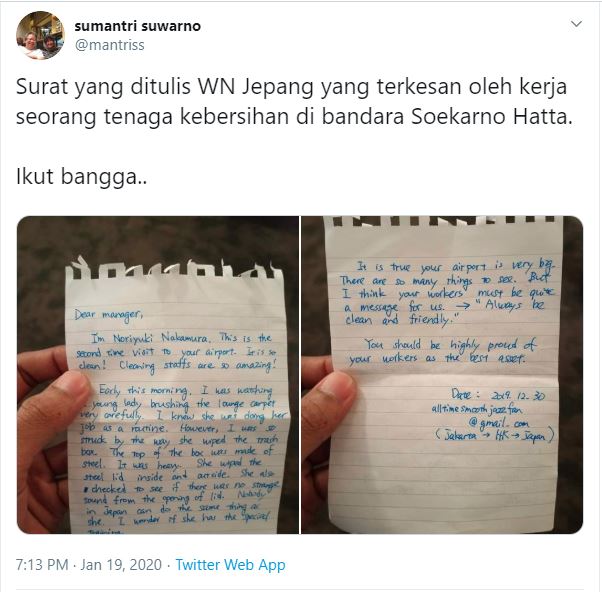 sumantri suwarno
@mantriss
Surat yang ditulis WN Jepang yang terkesan oleh kerja
seorang tenaga kebersihan di bandara Soekarno Hatta.
Ikut bangga..
Dear manager,
I'm Noriyuki Nakamura. This is the
second time visit to your airport. It is so
clean! Cleaning staffs are so amazing!
Early this morning, I was watching
young lady brushing the lounge carpet
very carefully. I knew she was doing her
job as a routine. However, I was so
struck by the way she wiped the trash
box. The top of the box was made of
steel. It was heavy. She wiped the
steel lid inside and outside. She also
checked to see if there was no strange
sound from the opening of lid. Nobody
in Japan can do the same thing as
she. I wonder if she has the special
training.
It is true your airport is very big.
There are so many things to see. But
I think your workers must be quite
a message for us. → "Always be
clean and friendly."
You should be highly proud of
your workers as the best asset.
Date: 2019. 12. 30
alltimesmoothjazzfan
@gmail.com
(Jakarta → HK → Japan)
7:13 PM · Jan 19, 2020 · Twitter Web App